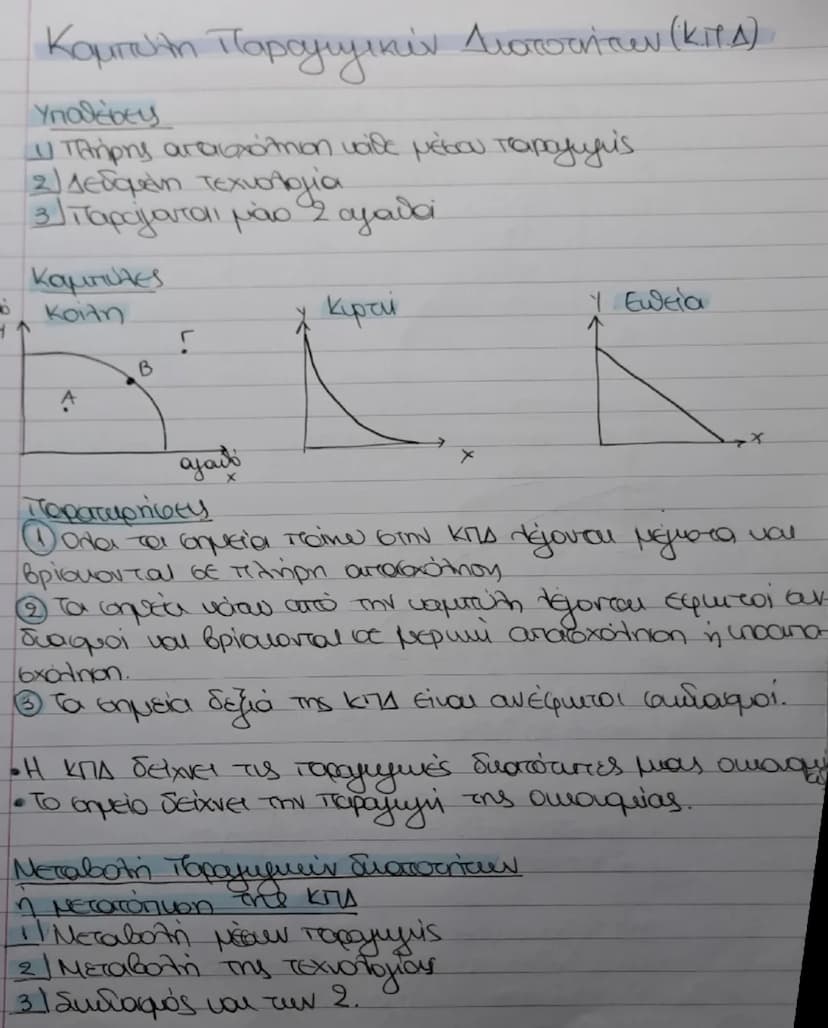 Καμπύλη Παραγωγικών Δυνατοτήτων (ΚΠΔ)
Υποθέσεις
1) Πλήρης απασχόληση κάθε μέσου παραγωγής
2) Δεδομένη τεχνολογία
3) Παράγονται μόνο 2 αγαθά
Καμπύλες
Κοίλη
Κυρτή
Ευθεία
Y
Y
Y
Γ
B
A
αγαθό
x
x
x
Παρατηρήσεις
① Όλα τα σημεία πάνω στην ΚΠΔ λέγονται μέγιστα και
βρίσκονται σε πλήρη απασχόληση
② Τα σημεία κάτω από την καμπύλη λέγονται εφικτοί συν-
διασμοί και βρίσκονται σε μερική απασχόληση ή υποαπα-
σχόληση.
③ Τα σημεία δεξιά της ΚΠΔ είναι ανέφικτοι συνδιασμοί.
• Η ΚΠΔ δείχνει τις παραγωγικές δυνατότητες μιας οικονομίας
• Το σημείο δείχνει την παραγωγή της οικονομίας.
Μεταβολή παραγωγικών δυνατοτήτων
ή μετατόπιση της ΚΠΔ
1) Μεταβολή μέσων παραγωγής
2) Μεταβολή της τεχνολογίας
3) Συνδιασμός και των 2.